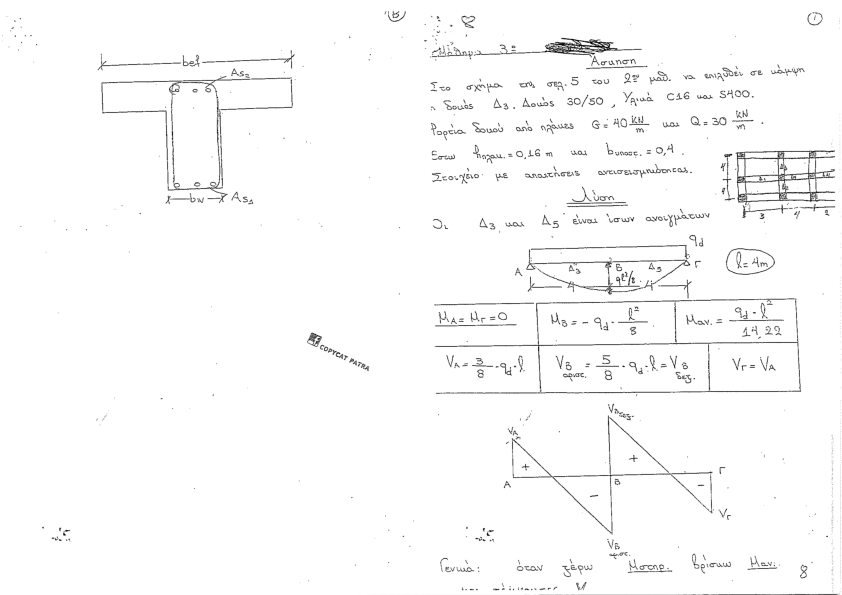 Β
bef
As₂
bw
As₁
COPYCAT PATRA
1
Μάθημα 3ο
Άσκηση
Στο σχήμα της σελ. 5 του 2ου μαθ. να επιλυθεί σε κάμψη
η δοκός Δ3. Δοκός 30/50, Υλικά C16 και S400.
Φορτία δοκού από πλάκες G = 40 KN/m και Q = 30 KN/m.
Έστω hπλακ. = 0,16 m και bυποστ. = 0,4.
Στοιχείο με απαιτήσεις αντισεισμικότητας.
Λύση
Οι Δ3 και Δ5 είναι ίσων ανοιγμάτων
4
4
3 4 2
qd
A Δ3 B Δ5 Γ
ql²/8
4 4
l = 4m
MA = MΓ = 0
MB = - qd · l²/8
Mαν. = qd · l²/14,22
VA = 3/8 · qd · l
VB αρισ. = 5/8 · qd · l = VB δεξ.
VΓ = VA
VBδεξ.
VA
+
+
A
B
Γ
-
-
VΓ
VB αρισ.
Γενικά: όταν ξέρω Μστηρ. βρίσκω Μαν. 8